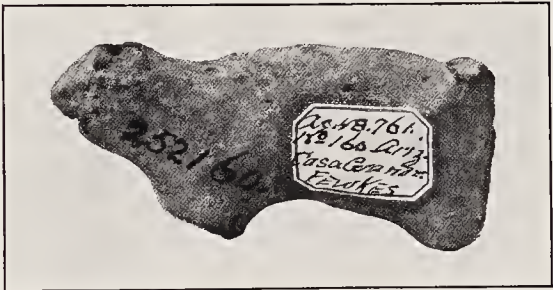 252160.
Ac. 48.761.
Nº 160 Ariz.
Casa Grande
FEWKES